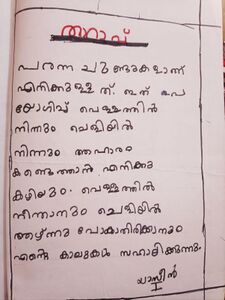 താറാവ്
പരന്ന ചുണ്ടുകളാണ്
എനിക്കുള്ളത്. ഇത് ഉപ
യോഗിച്ച് വെള്ളത്തിൽ
നിന്നും ചെളിയിൽ
നിന്നും ആഹാരം
കണ്ടെത്താൻ എനിക്കു
കഴിയും. വെള്ളത്തിൽ
നീന്താനും ചെളിയിൽ
ആഴ്ന്നു പോകാതിരിക്കാനും
എന്റെ കാലുകൾ സഹായിക്കുന്നു.
യാസീൻ